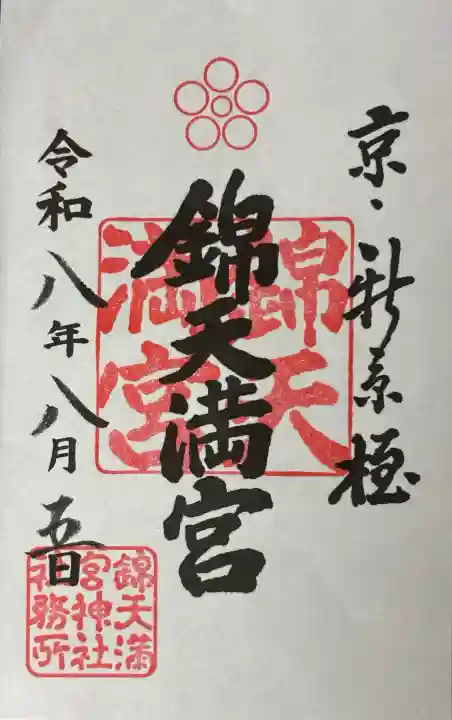 京・新京極
錦天満宮
錦天
満宮
令和八年八月五日
錦天満
宮神社
社務所